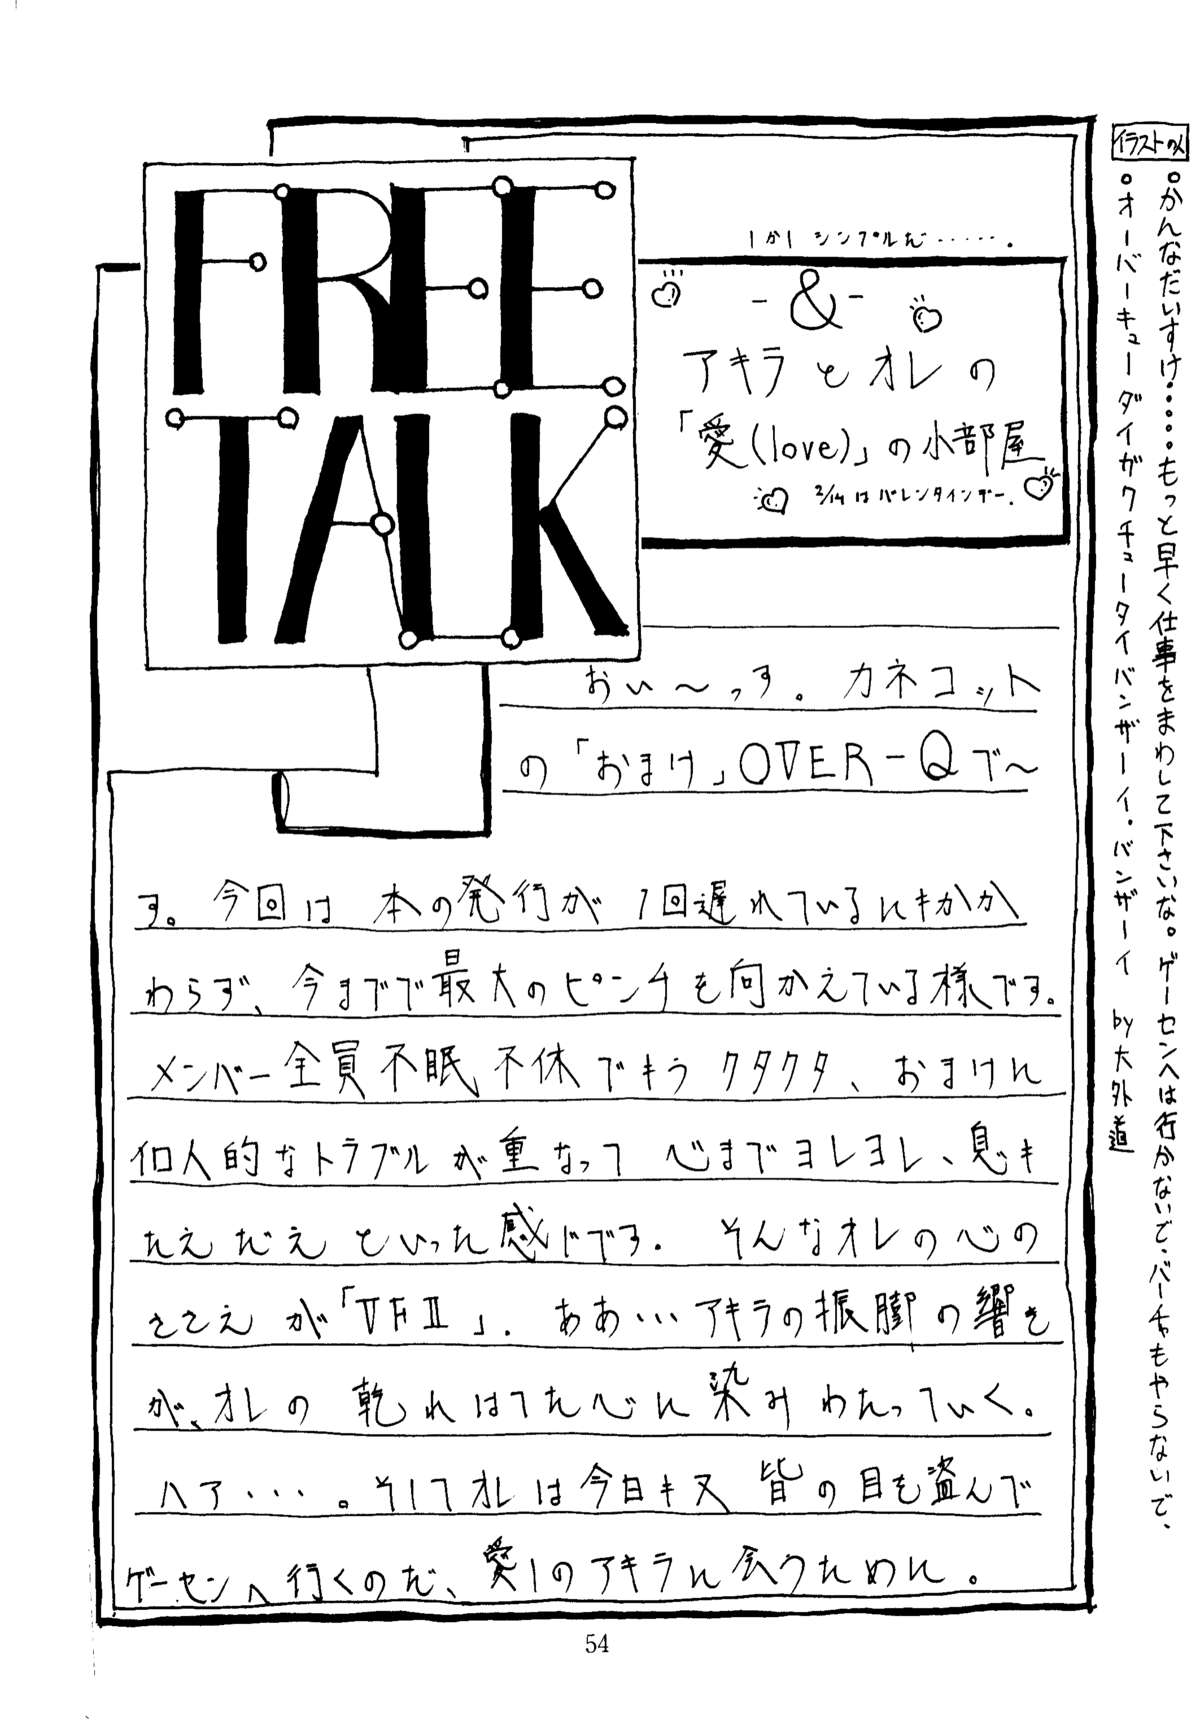 FREE
TALK
しかしシンプルだ‥‥‥。
-&-
アキラとオレの
「愛(love)」の小部屋
2/14はバレンタインデー.
おい〜っす。カネコット
の「おまけ」OVER-Qで〜
す。今回は 本の発行が1回遅れているにもかか
わらず、今までで最大のピンチを向かえている様です。
メンバー全員不眠不休でもうクタクタ、おまけに
個人的なトラブルが重なって 心までヨレヨレ、息も
たえだえといった感じです. そんなオレの心の
ささえが「VFⅡ」. ああ・・・アキラの振脚の響き
が、オレの 乾れはてた心に染みわたっていく。
ハア・・・。そしてオレは今日も又 皆の目を盗んで
ゲーセンへ行くのだ、愛しのアキラに会うために。
イラストのメ
。かんなだいすけ・。・。・。もっと早く仕事をまわして下さいな。ゲーセンへは行かないで、バーチャもやらないで、
。オーバーキューダイガクチュータイバンザーイ・バンザーイ by大外道
54